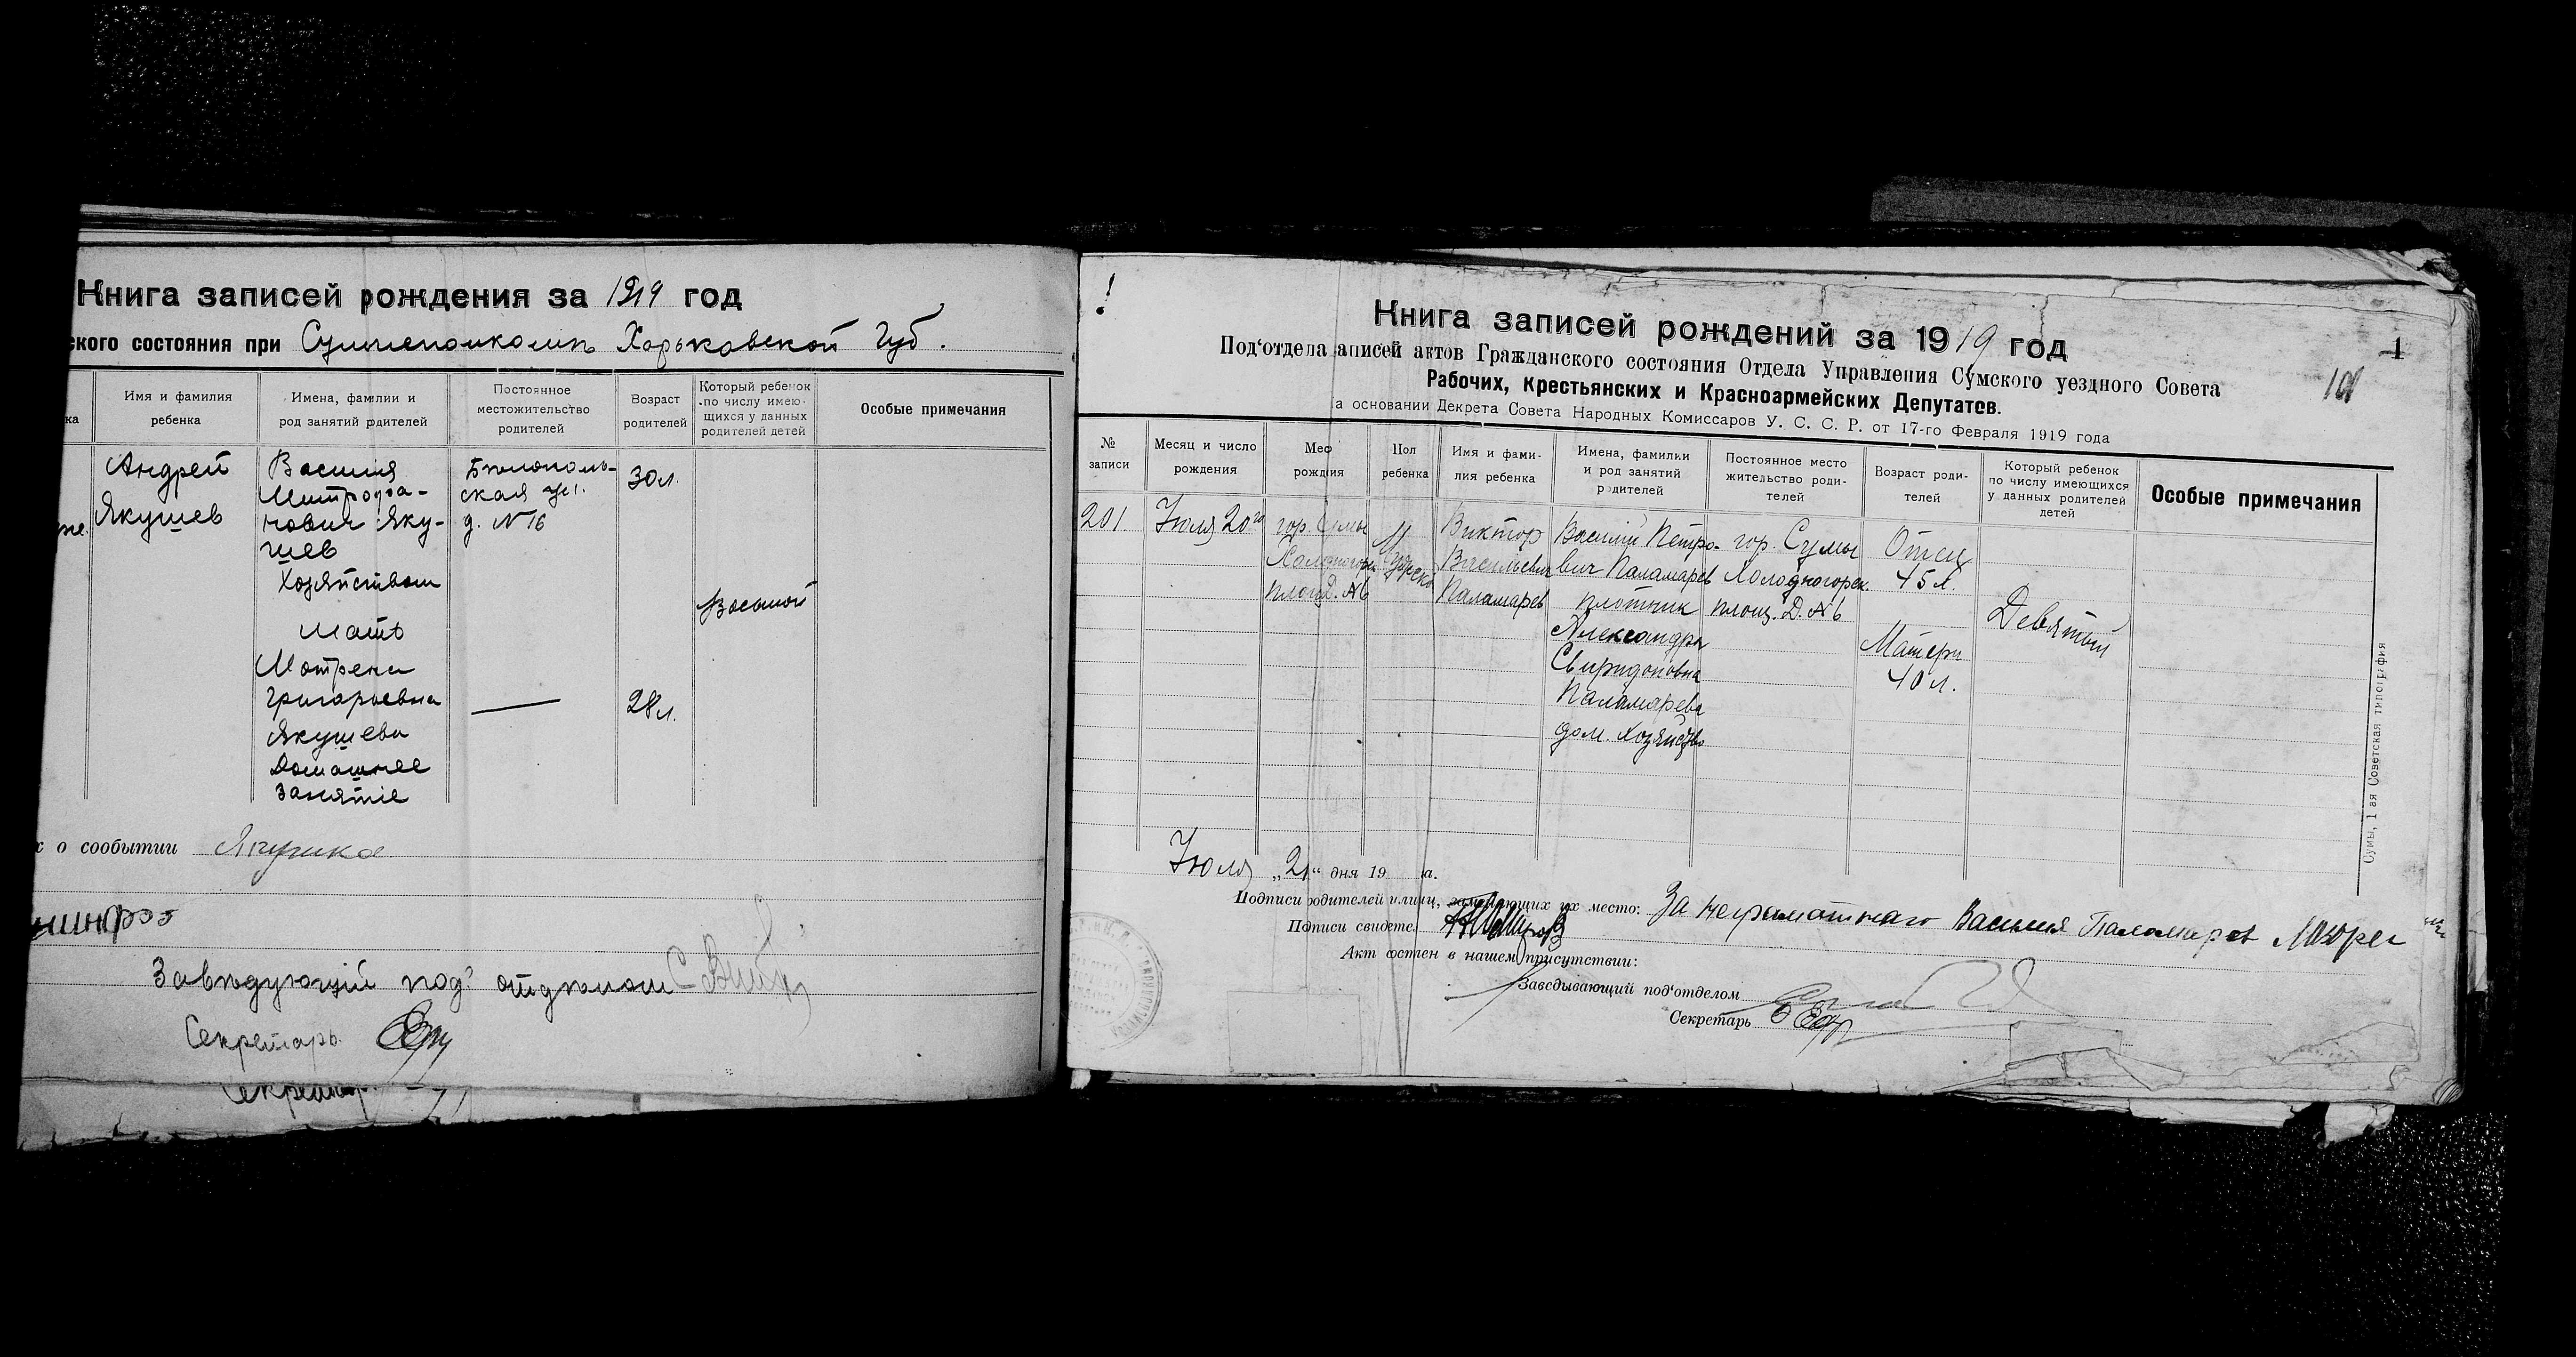 Книга записей рождения за 1919 год
ского состояния при Сумисполкомъ Харьковской Губ.
ка
Имя и фамилия
ребенка
Имена, фамилии и
род занятий родителей
Постоянное
местожительство
родителей
Возраст
родителей
Который ребенок
по числу имею-
щихся у данных
родителей детей
Особые примечания
Андрей
Якушев
Василия
Митрофа-
нович Яку-
шев
Хозяйством
Мать
Матрена
Григорьевна
Якушева
Домашнее
занятіе
Бѣлополь-
ская ул.
д. № 16
30 л.
28 л.
Восьмой
о сообытии
Завѣдующій под' отдѣлом
Секретарь
Секретар
Книга записей рождений за 1919 год
Под'отдела аписей актов Гражданского состояния Отдела Управления Сумского уездного Совета
Рабочих, Крестьянских и Красноармейских Депутатов.
а основании Декрета Совета Народных Комиссаров У. С. С. Р. от 17-го Февраля 1919 года
1
101
№
записи
Месяц и число
рождения
Мес
рождния
Пол
ребенка
Имя и фами-
лия ребенка
Имена, фамилии
и род занятий
родителей
Постоянное место
жительство роди-
телей
Возраст роди-
телей
Который ребенок
по числу имеющихся
у данных родителей
детей
Особые примечания
201.
Июля 20го
гор. Сумы
Холодногорск
площ. Д. № 6
Мужеско
Виктор
Васильевич
Паламарев
Василий Петро-
вич Паламарев
плотник
Александра
Свиридоновна
Паламарева
дом. хозяйство
гор. Сумы
Холодногорск.
площ. Д. № 6
Отец
45 л.
Матери
40 л.
Девятый
Июля „21“ дня 19 а.
Подписи родителей и лиц, заменяющих их место: За неграмотного Василия Паламарев
Пдписи свидете.
Акт состлен в нашем присутствии:
Заведывающий под'отделом
Секретарь
Сумы, 1 ая Советская типография